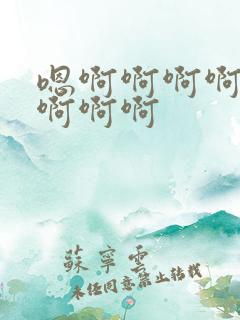 嗯啊啊啊啊
啊啊啊
蘇寧雲
未经同意禁止转载